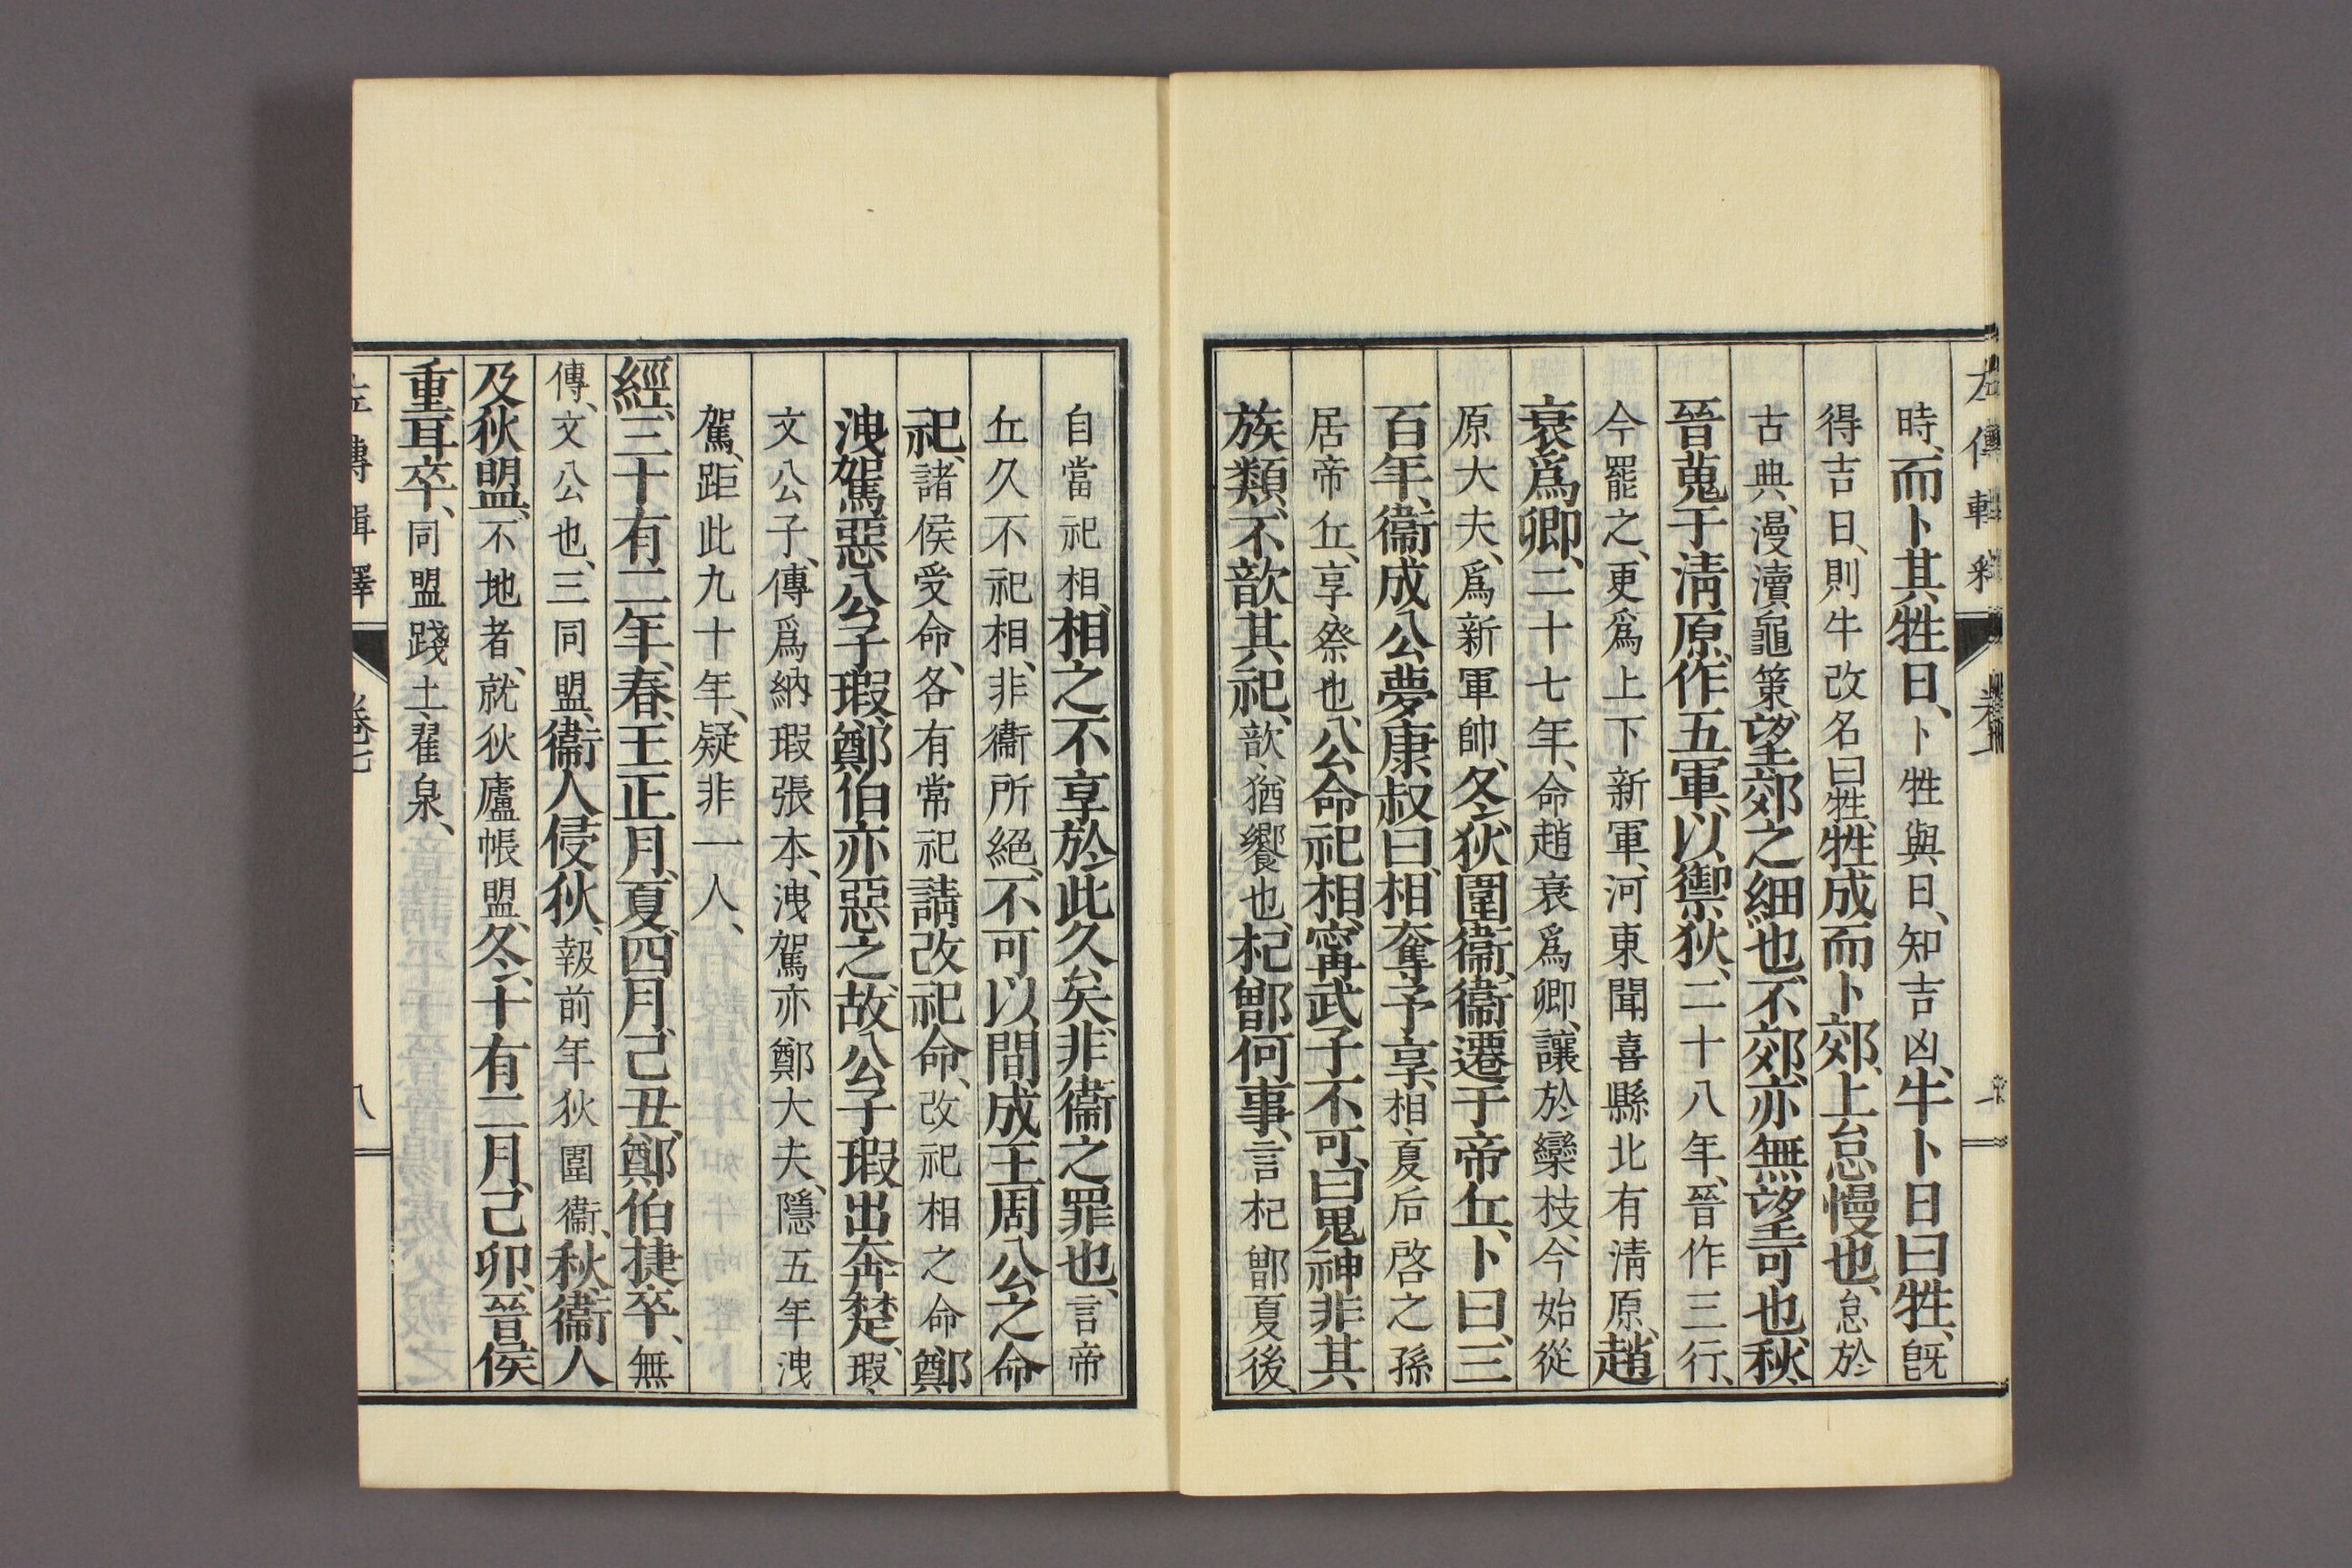 時、而卜其牲日、卜牲與日、知吉凶、牛卜日曰牲、旣
得吉日、則牛改名曰牲、牲成而卜郊、上怠慢也、怠於
古典、漫瀆龜策、望郊之細也、不郊、亦無望可也、秋、
晉蒐于淸原、作五軍、以禦狄、二十八年、晉作三行、
今罷之、更爲上下新軍、河東聞喜縣北有淸原、趙
衰爲卿、二十七年、命趙衰爲卿、讓於欒枝、今始從
原大夫、爲新軍帥、冬、狄圍衞、衞遷于帝丘、卜曰、三
百年、衞成公夢康叔曰、相奪予享、相、夏后啓之孫
居帝丘、享、祭也、公命祀相、甯武子不可、曰、鬼神非其
族類、不歆其祀、歆、猶饗也、杞鄫何事、言杞鄫夏後、
自當祀相、相之不享於此久矣、非衞之罪也、言帝
丘久不祀相、非衞所絕、不可以閒成王周公之命
祀、諸侯受命、各有常祀、請改祀命、改祀相之命、鄭
洩駕惡公子瑕、鄭伯亦惡之、故公子瑕出奔楚、瑕、
文公子、傳爲納瑕張本、洩駕亦鄭大夫、隱五年洩
駕、距此九十年、疑非一人、
經、三十有二年、春、王正月、夏、四月、己丑、鄭伯捷卒、無
傳、文公也、三同盟、衞人侵狄、報前年狄圍衞、秋、衞人
及狄盟、不地者、就狄廬帳盟、冬、十有二月、己卯、晉侯
重耳卒、同盟踐土、翟泉、
卷七
八